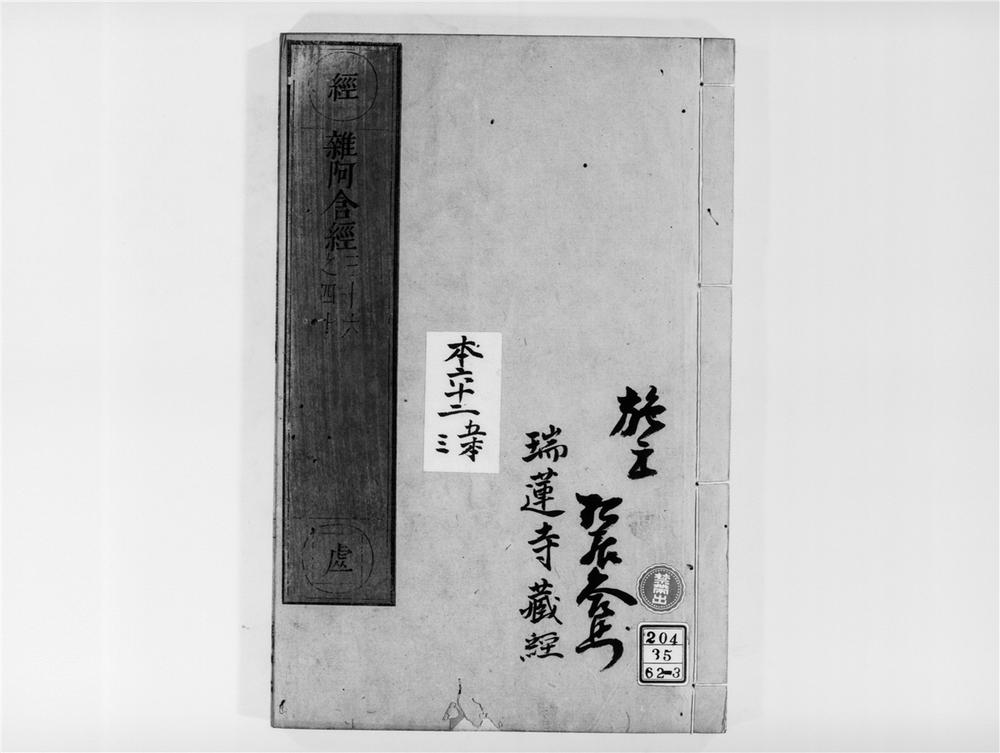 經
雜阿含經
三十六
之四十
處
本六十二
五本
三
施主
瑞蓮寺藏經
禁帶出
204
35
62-3